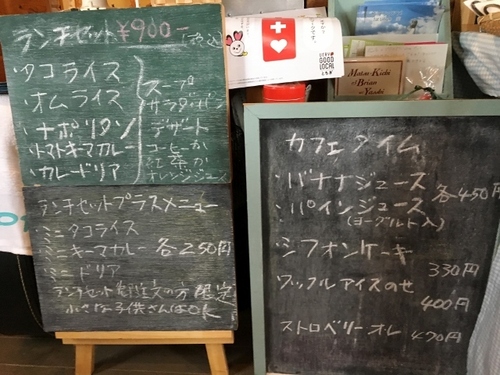 ランチセット ¥900-
(税込)
・タコライス
・オムライス
・ナポリタン
・トマトキーマカレー
・カレードリア
スープ
サラダ・パン
デザート
コーヒーか
紅茶か
オレンジジュース
ランチセットプラスメニュー
ミニタコライス
ミニキーマカレー 各250円
ミニドリア
ランチセット御注文の方限定
小さな子供さんはOK
VERY
GOOD
LOCAL
とちぎ
Matsu-Kichi
&Brian
&Yasuki
カフェタイム
・バナナジュース 各450円
・パインジュース
(ヨーグルト入)
シフォンケーキ
330円
ワッフルアイスのせ
400円
ストロベリーオレ 470円